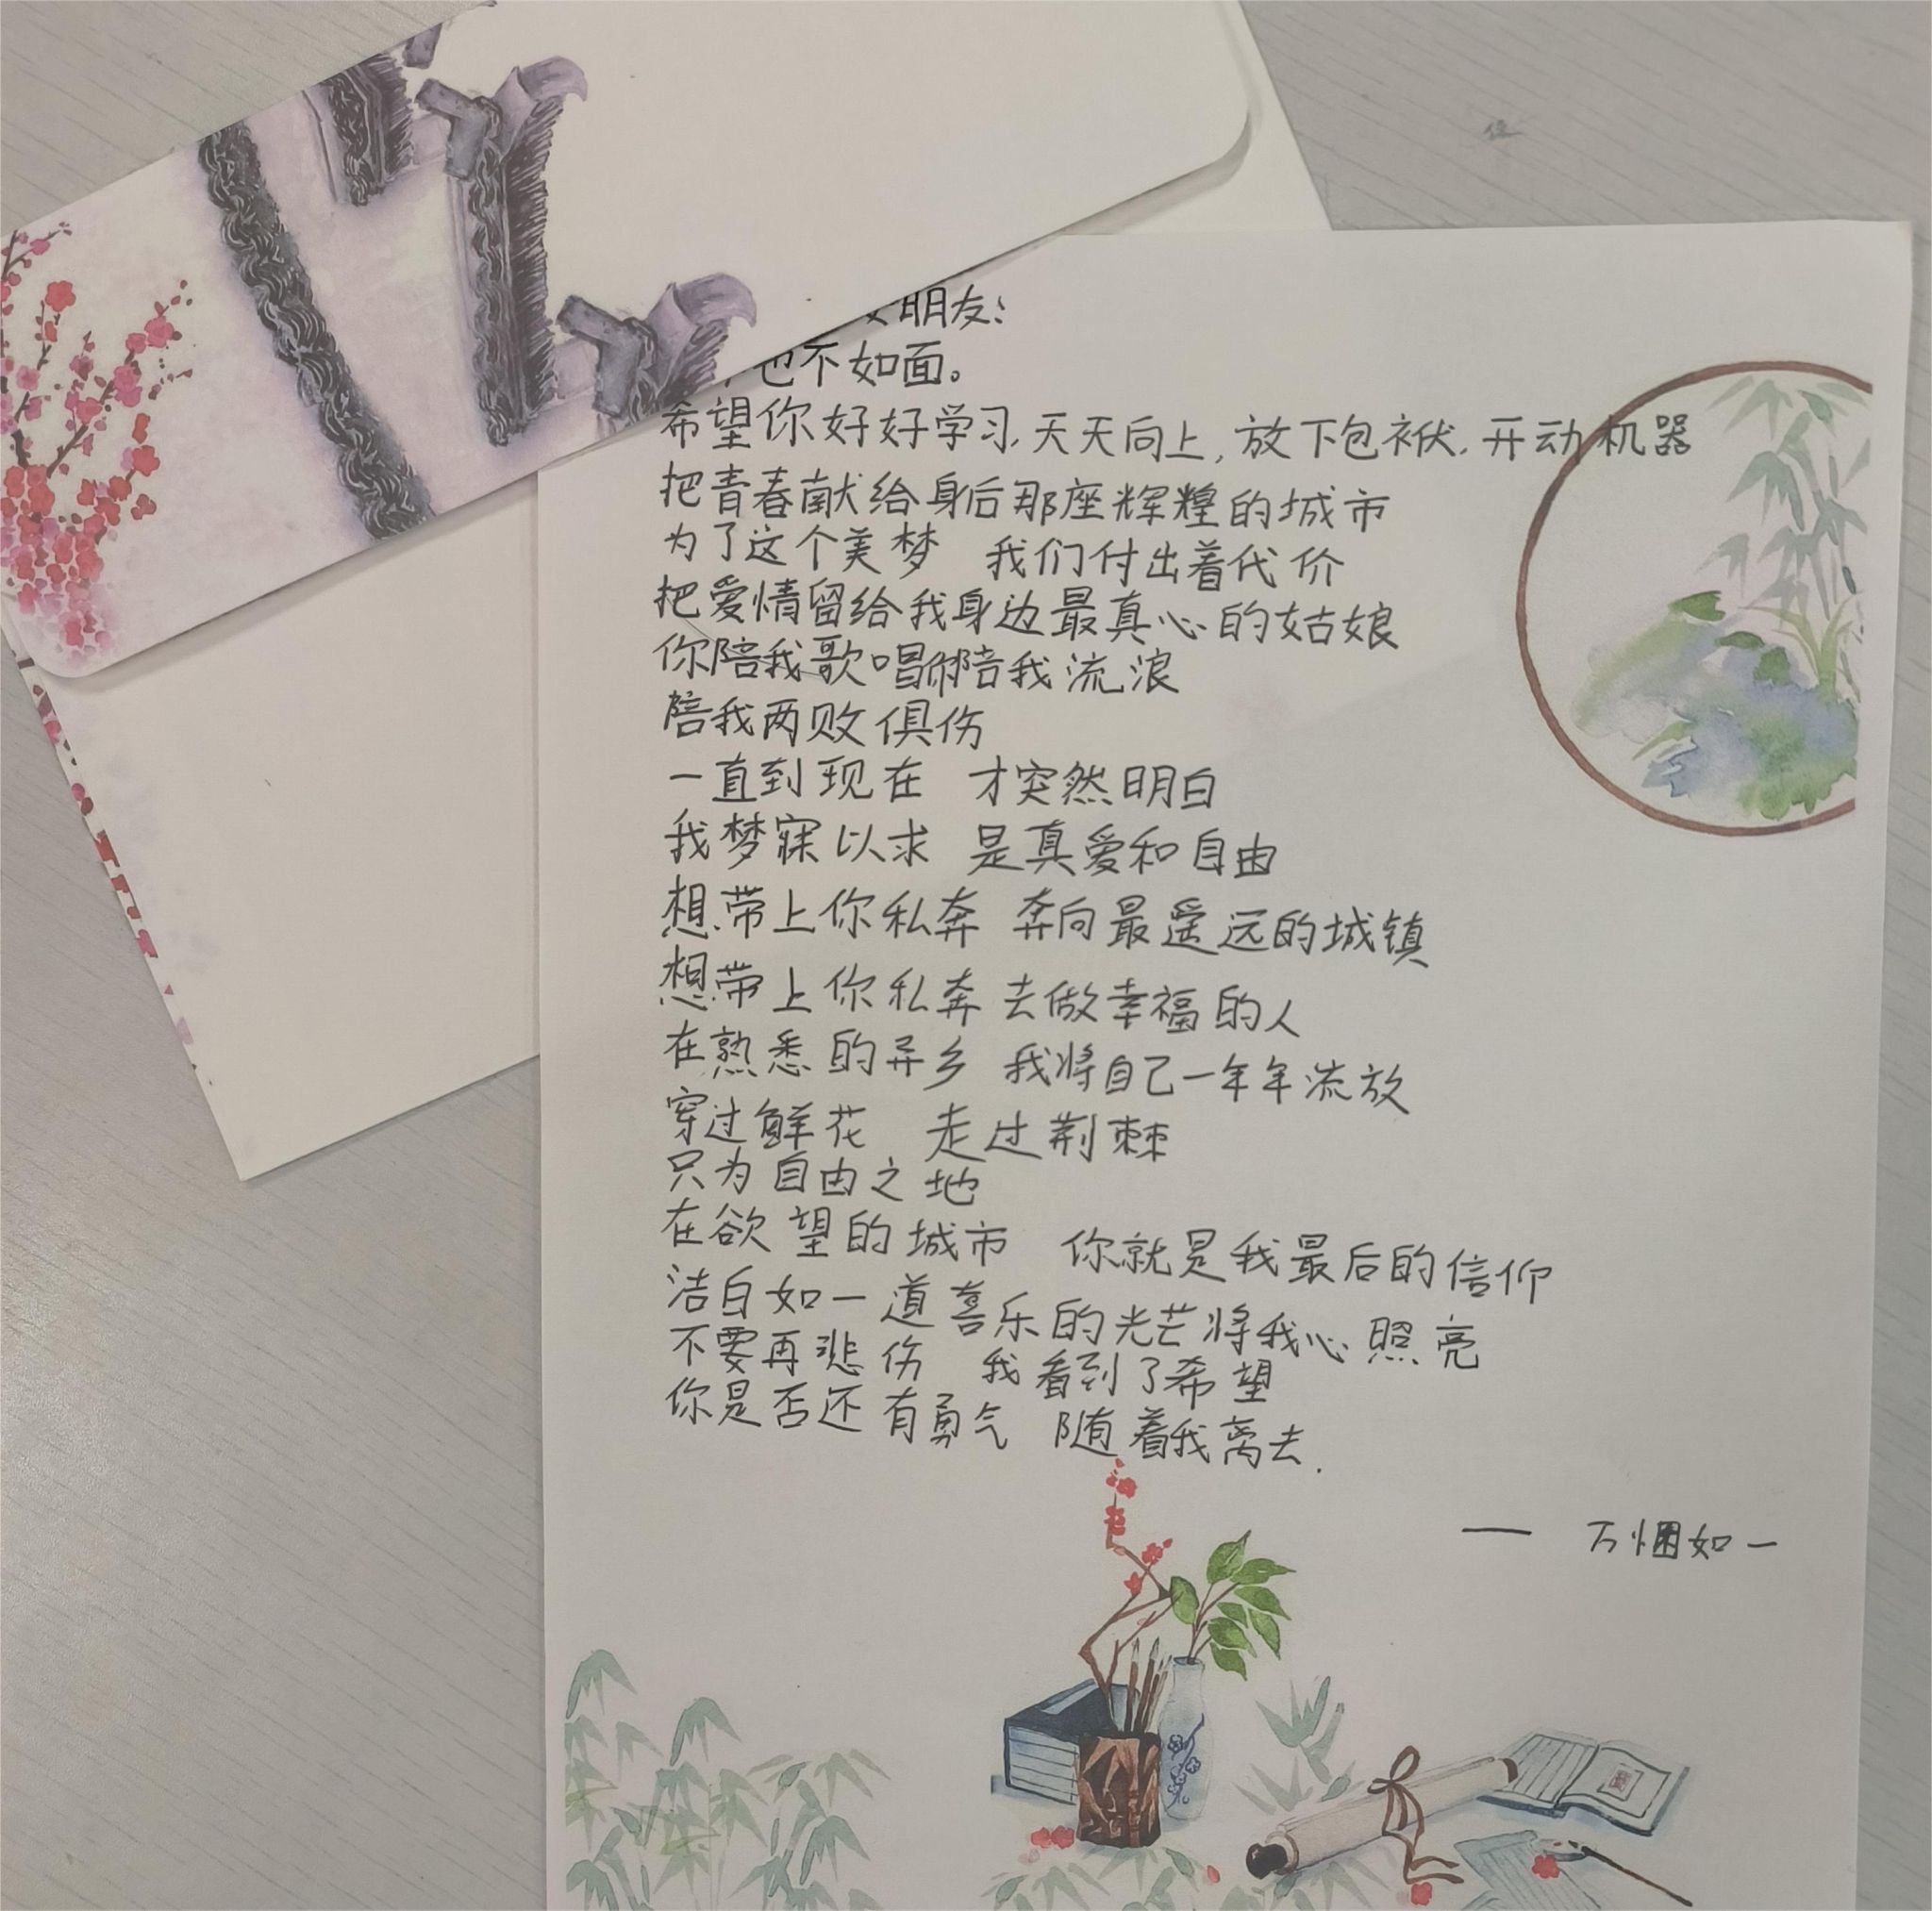 朋友：
也不如面。
希望你好好学习,天天向上,放下包袱,开动机器
把青春献给身后那座辉煌的城市
为了这个美梦 我们付出着代价
把爱情留给我身边最真心的姑娘
你陪我歌唱你陪我流浪
陪我两败俱伤
一直到现在 才突然明白
我梦寐以求 是真爱和自由
想带上你私奔 奔向最遥远的城镇
想带上你私奔 去做幸福的人
在熟悉的异乡 我将自己一年年流放
穿过鲜花 走过荆棘
只为自由之地
在欲望的城市 你就是我最后的信仰
洁白如一道喜乐的光芒将我心照亮
不要再悲伤 我看到了希望
你是否还有勇气 随着我离去.
—— 万悃如一